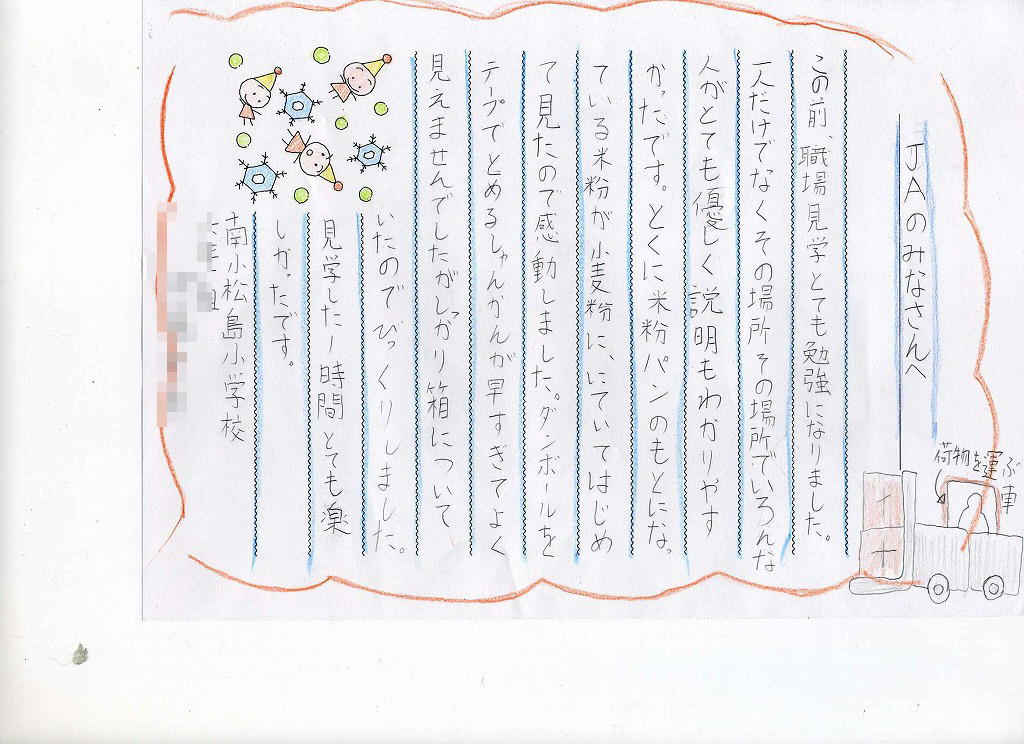 JAのみなさんへ
この前、職場見学とても勉強になりました。
一人だけでなくその場所その場所でいろんな
人がとても優しく説明もわかりやす
かったです。とくに米粉パンのもとになっ
ている米粉が小麦粉に、にていてはじめ
て見たので感動しました。ダンボールを
テープでとめるしゅんかんが早すぎてよく
見えませんでしたがしっかり箱について
いたのでびっくりしました。
見学した1時間とても楽
しかったです。
南小松島小学校
荷物を運ぶ
車